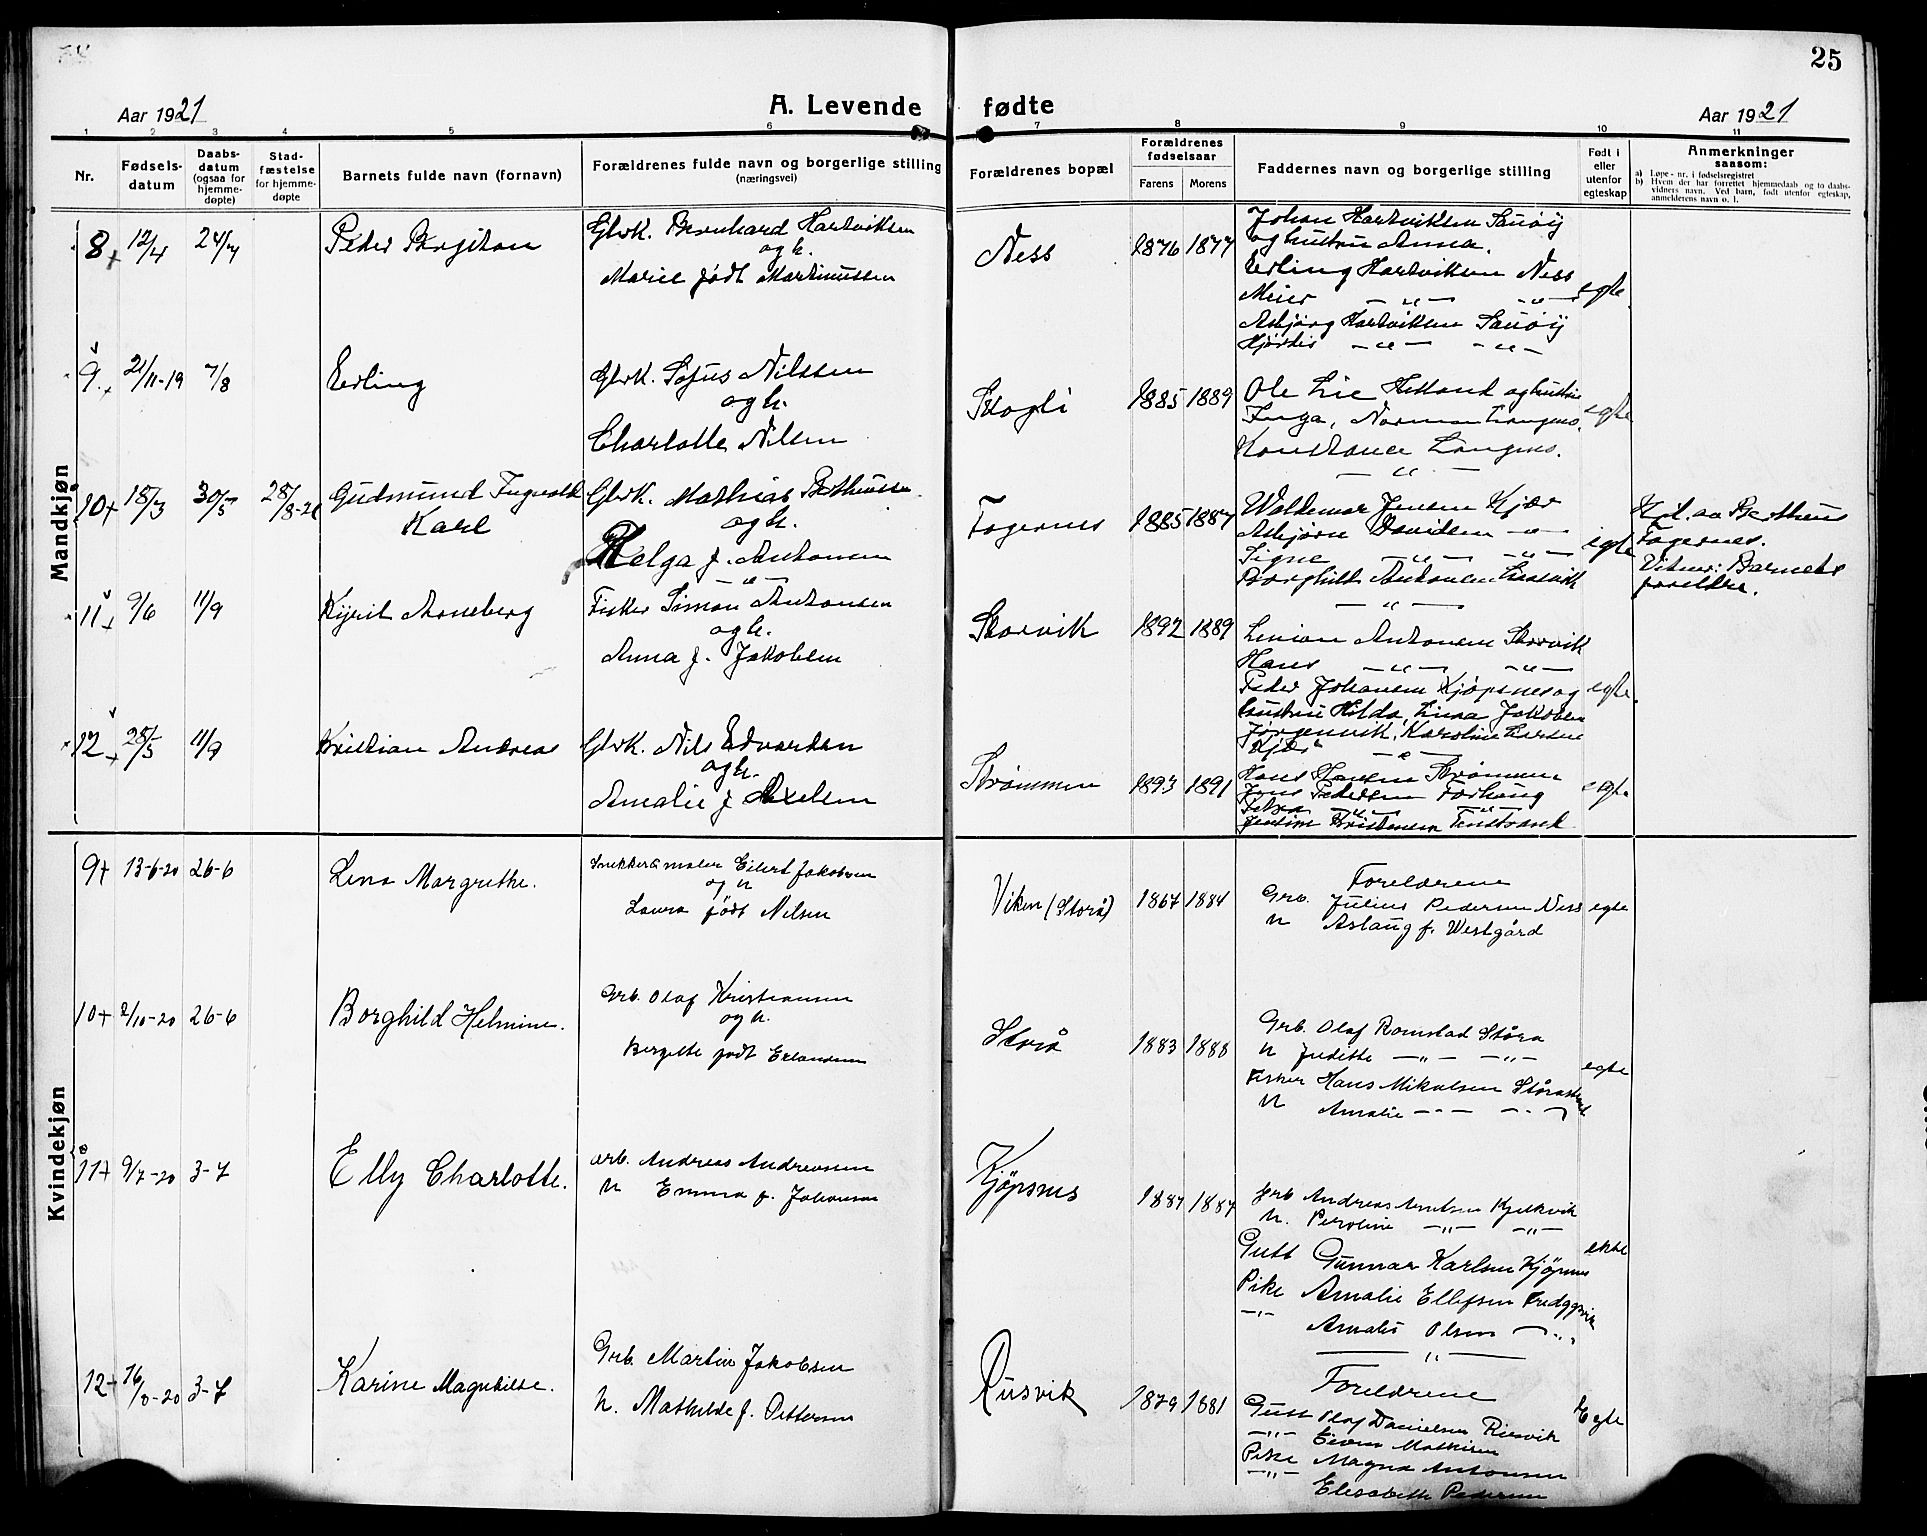 25
Aar 1921
A. Levende fødte
Aar 1921
1 2 3 4 5 6 7 8 9 10 11
Nr.
Fødsels-
datum
Daabs-
datum
(ogsaa for
hjemme-
døpte)
Stad-
fæstelse
for hjemme-
døpte
Barnets fulde navn (fornavn)
Forældrenes fulde navn og borgerlige stilling
(næringsvei)
Forældrenes bopæl
Forældrenes
fødselsaar
Farens Morens
Faddernes navn og borgerlige stilling
Født i
eller
utenfor
egteskap
Anmerkninger
saasom:
a) Løpe-nr. i fødselsregistret
b) Hvem der har forrettet hjemmedaab og to daabs-
vidners navn. Ved barn, født utenfor egteskap,
anmelderens navn o. l.
Mandkjøn
8 12/4 24/7
Peder
Gbrk. Bernhard Hartviksen
og h.
Marie født Martinussen
Ness 1876 1877
Johan Hartviksen Sauøy
og hustru Anna.
Erling Hartviksen Ness
Meier — „ — — „ —
Asbjørg Hartviksen Sauøy
Hjørdis — „ — — „ —
egte
9. 21/11-19 7/8
Erling
Gbrk. Sofus Nilssen
og h.
Charlotte Nilsen
Skogli 1885 1889
Ole Lie Hetland og hustru
Inga, Norman Langnes.
Konstance Langnes.
— „ —
egte
10+ 18/3 30/5 28/8-21
Gudmund Ingvald
Karl
Gbrk. Mathias Bertheussen
og h.
Helga f. Antonsen
— „ —
Fagernes 1885 1887
Waldemar Jensen Kjær
Asbjørn Davidsen — „ —
Signe — „ — — „ —
Borghild Antonsen
— „ —
egte
H.d. av Bertheus
Fagernes.
Vitner: Barnets
foreldre.
11+ 9/6 11/9
Kyrit Arneberg
Fisker Simon Antonsen
og h.
Anna f. Jakobsen
Storvik 1892 1889
Antonsen Storvik
Hans — „ — — „ —
Peder Johansen Kjøpsnes og
hustru Hilda, Lina Jakobsen
Jørgenvik, Karoline Larsen
Kjær — „ —
egte.
12+ 28/5 11/9
Kristian Andreas
Gbrk. Nils Edvardsen
og h.
Amalie f. Axelsen
Strømmen 1893 1891
Hans Hansen Strømmen
Jens Pedersen Forhaug
Petra — „ — — „ —
Kristensen
egte
Kvindekjøn
9+ 13-6-20 26-6
Lena Margrethe.
Snekker & maler Eilert Jakobsen
og h
Laura født Nilsen
Viken (Storå) 1867 1884
Foreldrene
Grb. Julius Pedersen Ness
h Aslaug f. Westgård
egte
10+ 2/10-20 26-6
Borghild Helmine.
Grb. Olaf Kristiansen
og h.
Bergette født Erlandsen
Storå 1883 1888
Grb. Olaf Romstad Stora
h Judithe — „ — — „ —
Fisker Hans Mikalsen Storåstrand
h Amalie — „ — — „ —
egte
11+ 9/7-20 3-7
Elly Charlotte.
arb. Andreas Andreassen
h Emma f. Johansen
Kjøpsnes 1887 1887
grb Andreas Arntsen Kjelkvik
h. Peroline — „ — — „ —
Gutt Gunnar Karlsen Kjøpsnes
Pike Amalie Ellefsen
— „ — Amalie Olsen — „ —
— „ —
ekte
12+ 16/8-20 3-7
Karine Magnhilde.
Grb. Martin Jakobsen
h. Mathilde f. Pettersen
Rusvik 1879 1881
Foreldrene
Gutt Olaf Danielsen Rusvik
— „ — Einar Mathisen
Pike Magna Antonsen
— „ — Elisabeth Pedersen
Egte